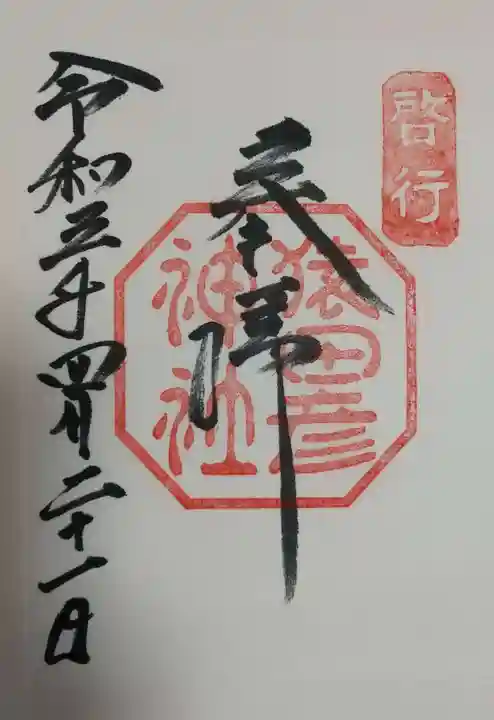 啓行
奉拝
猿田彦
神社
令和三年四月二十一日